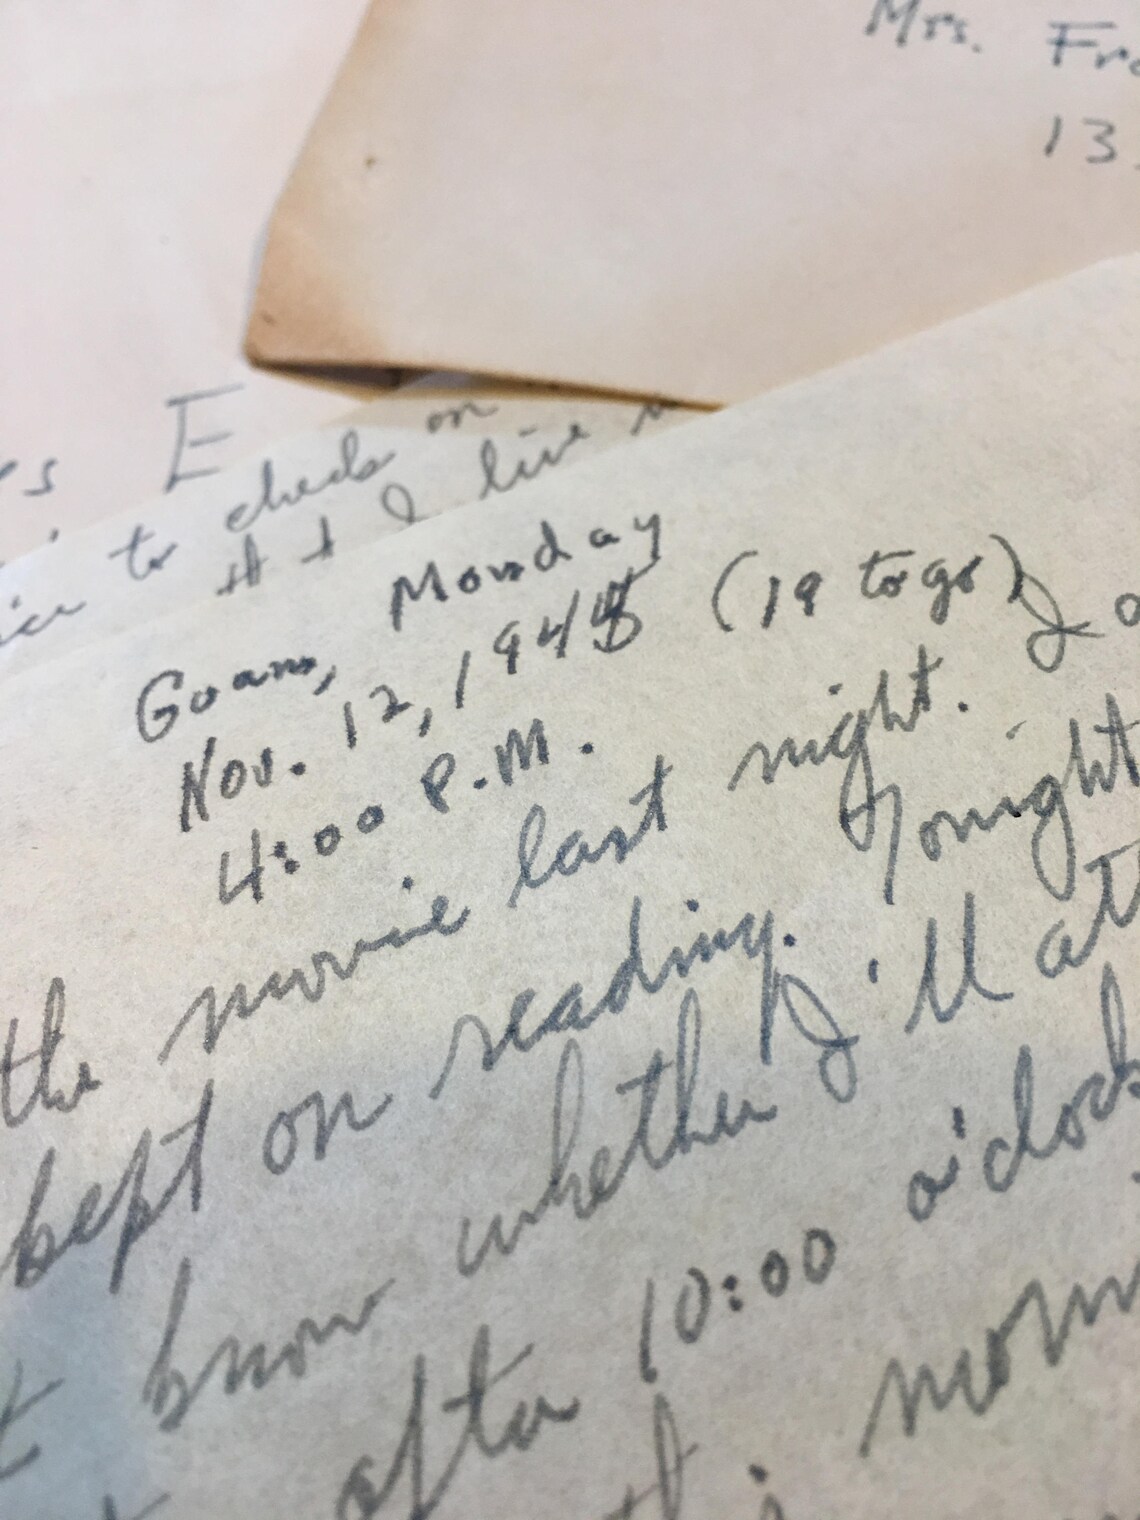 Mrs. Fra
13
s E
to check on
I live
Guam, Monday
Nov. 12, 1945 (19 to go)
4:00 P.M.
the movie last night. I
kept on reading. Tonight
t know whether I'll att
after 10:00 o'clock
morn